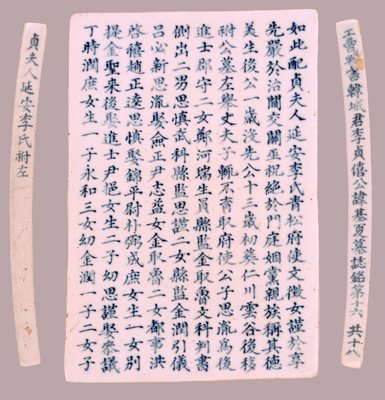 工曹判書韓城君李貞僖公諱基夏墓誌銘第十六 共十八
如此配貞夫人延安李氏青松府使文徵女謹於享
先嚴於治交巫祝絶於門庭姻黨親族稱其德
義生後公一歲沒先公十三歲初葬仁川雲谷後移
祔公墓左丈夫子輒不育取府使公子思胤爲後
進士郡守二女鄭河瑞生員縣監金取魯文科判書
側出二男思慎武科縣監思謹二女縣監金潤引儀
呂必新思胤娶僉正尹志益女金取魯一女都事洪
啓禧趙正逵思慎娶錦平尉朴弼成庶女生一女別
提金聖來後娶進士尹女生二子幼思謹娶參議
丁時潤庶女生一子永和三女幼金潤一子二女子
貞夫人延安李氏祔左